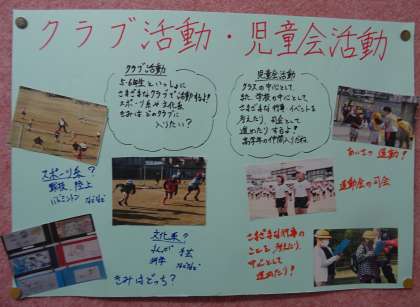 クラブ活動・児童会活動
クラブ活動
5・6年生といっしょに
さまざまなクラブで活動するよ!
スポーツ系や文化系
きみはどのクラブに
入りたい?
児童会活動
クラスの中心として
また、学校の中心として
さまざまな行事・イベントを
考えたり、司会として
進めたりするよ!
高学年の仲間入りだね。
スポーツ系?
野球、陸上
バドミントン などなど
あいさつ運動!
運動会の司会
文化系?
まんが 手芸
科学 などなど
きみはどっち?
さまざまな行事の
ことを考えたり、
中心として
進めたり!